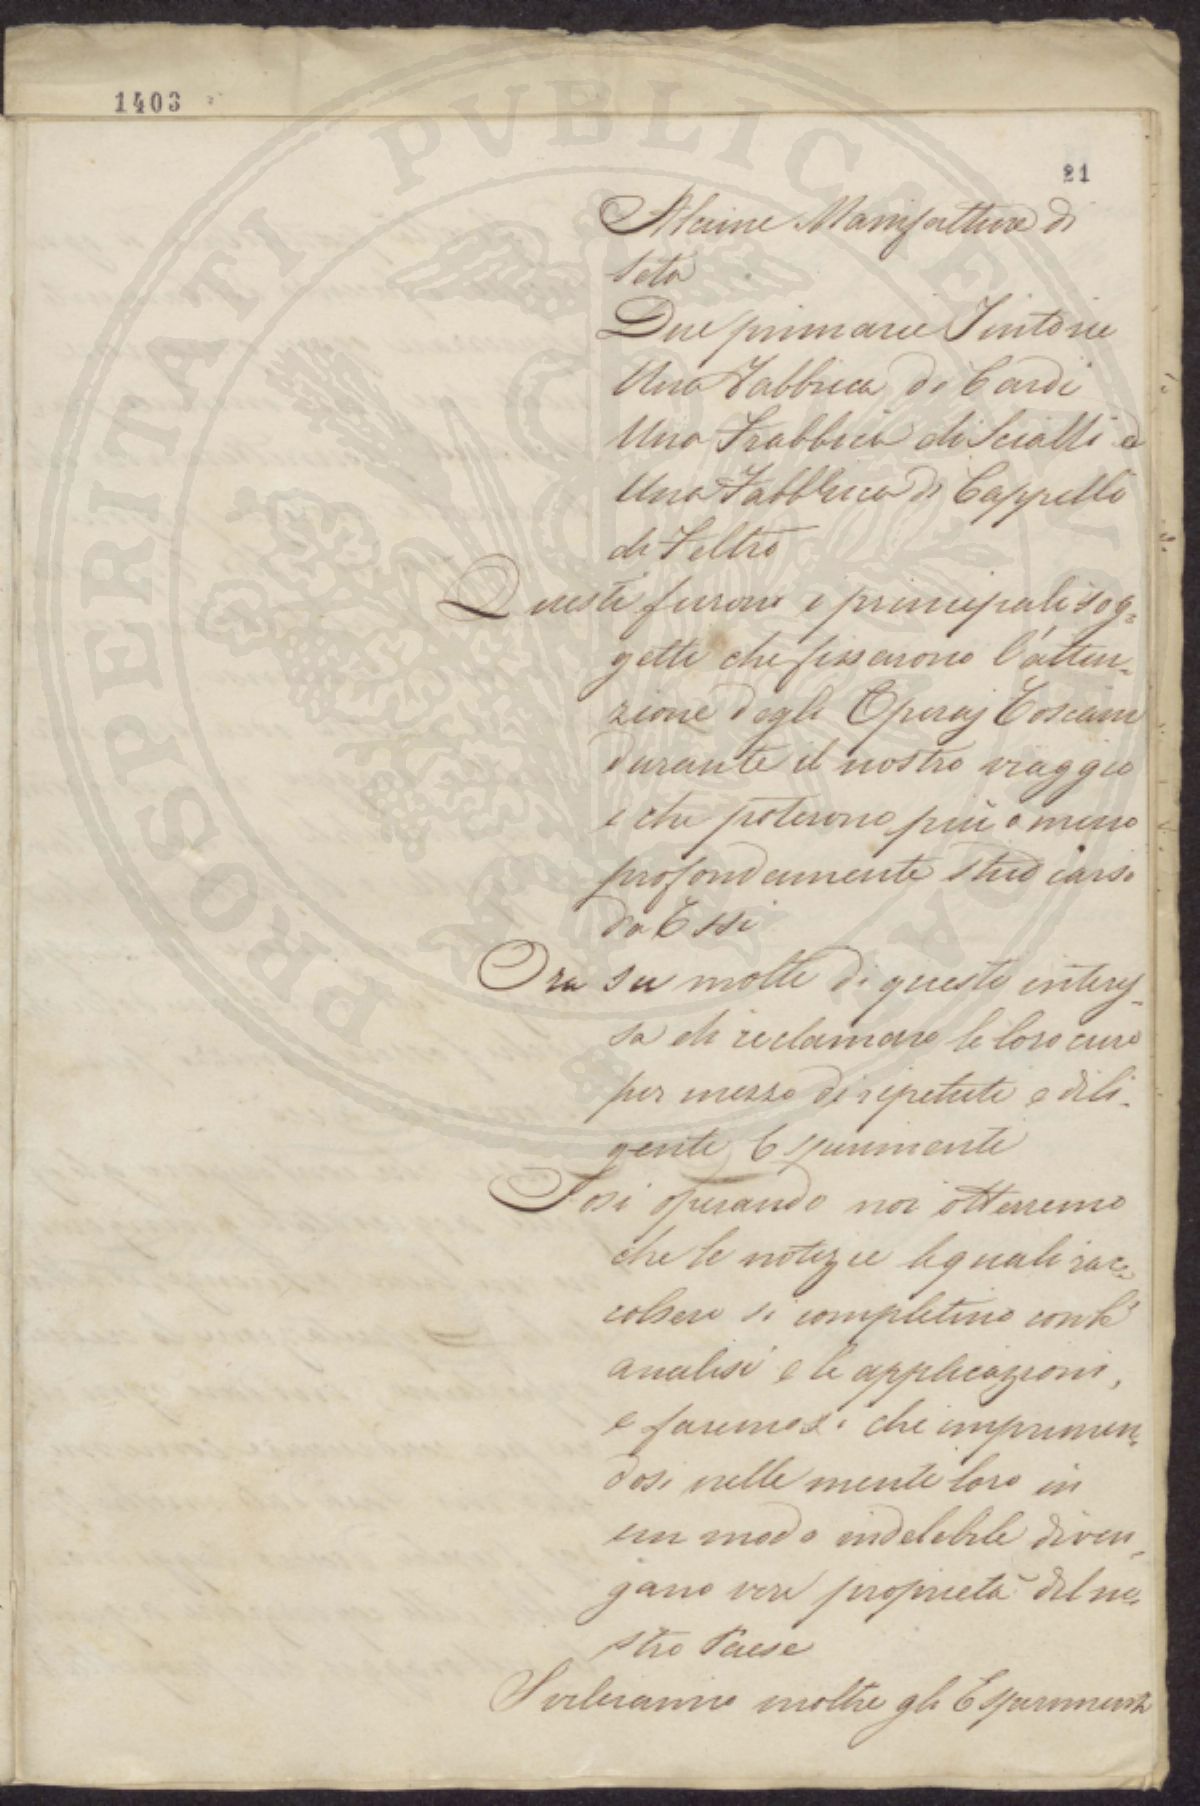 1403
21
Alcune Manifatture di
Seta
Due primarie Tintorie
Una Fabbrica di Cardi
Una Frabbrica di Scialli e
Una Fabbrica di Cappelli
di Feltro
Questi furono i principali sog=
getti che fissarono l'atten=
zione degli Operaj Toscani
durante il nostro viaggio
e che poterono più o meno
profondamente studiarsi
da Essi
Ora su molte di queste interes=
sa di reclamare le loro cure
per mezzo di ripetuti e dili=
genti Esperimenti
Cosi operando noi otterremo
che le notizie le quali rac=
colsero si completino con le
analisi e le applicazioni,
e faremo si che imprimen=
dosi nelle menti loro in
un modo indelebile diven=
gano vere proprietà del no=
stro Paese
inoltre gli Esperimenti
PROSPERITATI PVBLICAE